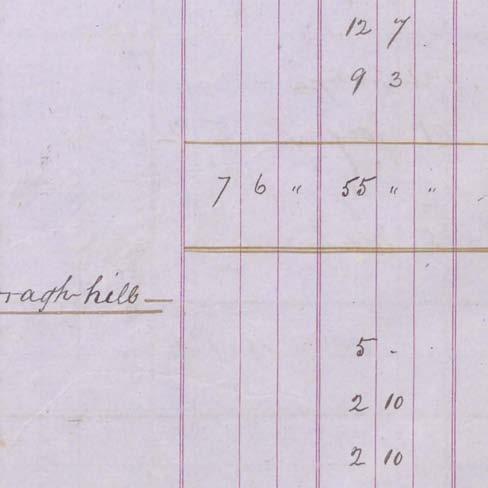 12 7
9 3
7 6 " 55 " "
ragh hill
5 -
2 10
2 10